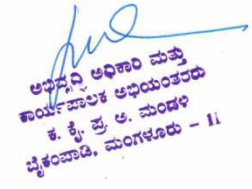 ಅಭಿವೃದ್ಧಿ ಅಧಿಕಾರಿ ಮತ್ತು
ಕಾರ್ಯಪಾಲಕ ಅಭಿಯಂತರರು
ಕ. ಕೈ. ಪ್ರ. ಅ. ಮಂಡಳಿ
ಬೈಕಂಪಾಡಿ, ಮಂಗಳೂರು - 11